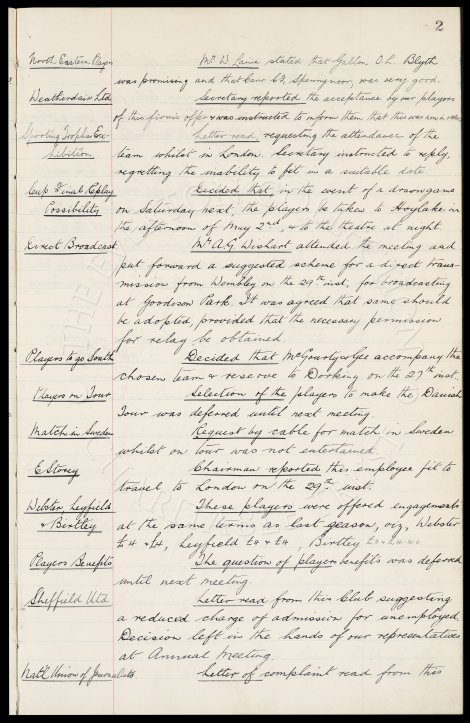 2
North Eastern Playrs Mr D Lawe stated that Gallon O.L. Blyth
was promising and that Carr C.H. Spennymoor, was very good.
Weatherdair Ltd Secretary reported the acceptance by our players
of this firm's offer & was instructed to inform them that this was in order
Sporting Trophies Ex- Letter read, requesting the attendance of the
hibition team whilst in London. Secretary instructed to reply,
regretting the inability to fit in a suitable date
Cup Final Replay Decided that in the event of a drawn game
Possibility on Saturday next, the players be taken to Hoylake in
the afternoon of May 2nd, & to the theatre at night
Direct Broadcast Mr A.G. Wishart attended the meeting and
put forward a suggested scheme for a direct trans-
mission from Wembley on the 29th inst, for broadcasting
at Goodison Park. It was agreed that same should
be adopted, provided that the necessary permission
for relay be obtained.
Players to go South Decided that Mr Gourley & Gee accompany the
chosen team & reserve to Dorking on the 27th inst.
Players on Tour Selection of the players to make the Danish
Tour was deferred until next meeting.
Match in Sweden Request by cable for match in Sweden
whilst on tour was not entertained
E Storey Chairman reported this employee fit to
travel to London on the 29th inst.
Webster, Leyfield These players were offered engagements
& Birtley at the same terms as last season, viz, Webster
£4 & £4, Leyfield £4 & £4, Birtley
Players Benefits The question of players benefits was deferred
until next meeting.
Sheffield Utd Letter read from this Club suggesting
a reduced charge of admission for unemployed
Decision left in the hands of our representatives
at Annual Meeting.
Nat'l Union of Journalists. Letter of complaint read from this